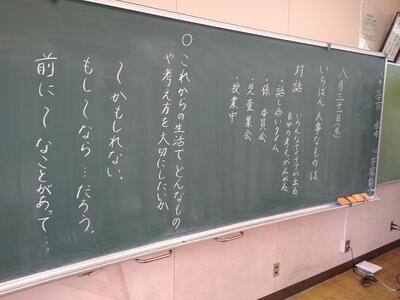 八月三十一日(水)
いちばん大事なものは
対話
いろんなアイデアが出る
自分の考えが広がる
・話し合いタイム
・係、委員会
・児童集会
・授業中
○これからの生活で、どんなもの
や考え方を大切にしたいか
~かもしれない。
もし~なら…だろう。
前に~なことがあって…。